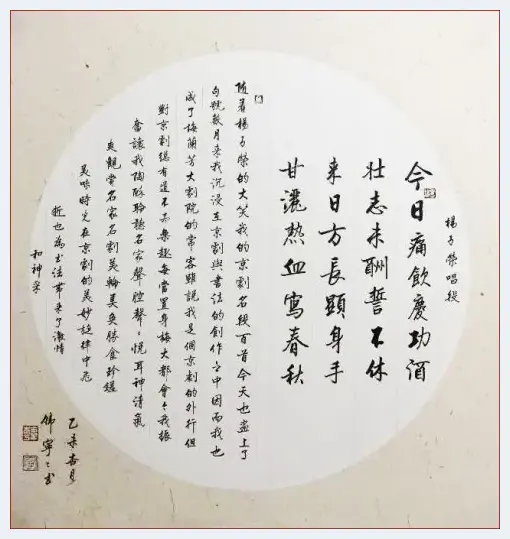 楊子榮唱段
今日痛飲慶功酒
壯志未酬誓不休
来日方長顕身手
甘灑热血寫春秋
随着楊子榮的大笑我的京劇名段百首今天也画上了
句號数月来我沉浸在京劇與書法的創作之中因而我也
成了梅蘭芳大劇院的常客雖説我是個京劇的外行但
對京劇總有道不尽樂趣每當置身梅大都會令我振
奮讓我陶醉聆聽名家聲腔聲々悦耳神清氣
爽觀賞名家名劇美輪美奐勝食珍饈
美味時光在京劇的美妙旋律中飛
逝也為书法带来了激情
和神采
乙未杏月
寧々书